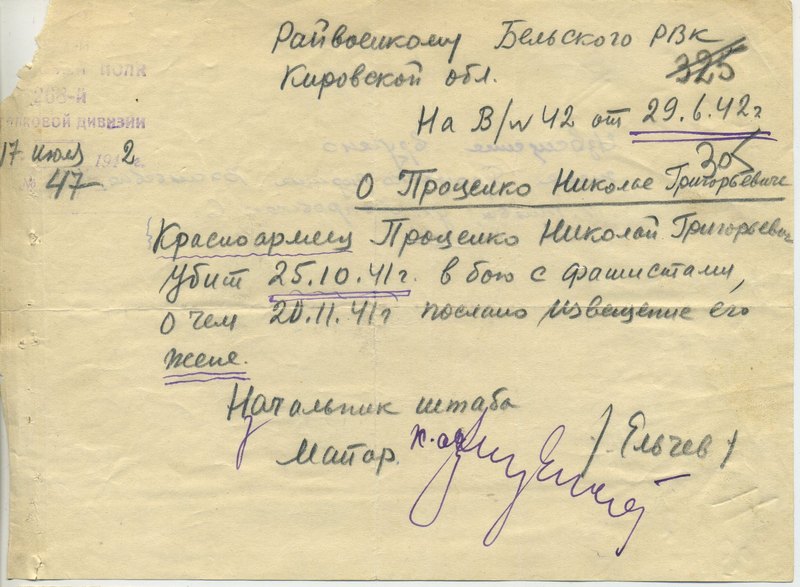 Райвоенкому Бельского РВК
Кировской обл. 325
На В/№ 42 от 29.6.42г
полк
268-й
ковой дивизии
17 июля 1942 г.
№ 47
О Проценко Николае Григорьевиче
Красноармеец Проценко Николай Григорьевич
Убит 25.10.41г. в бою с фашистами,
О чем 20.11.41г послано извещение его
жене.
Начальник штаба
Майор. / Ельчев /